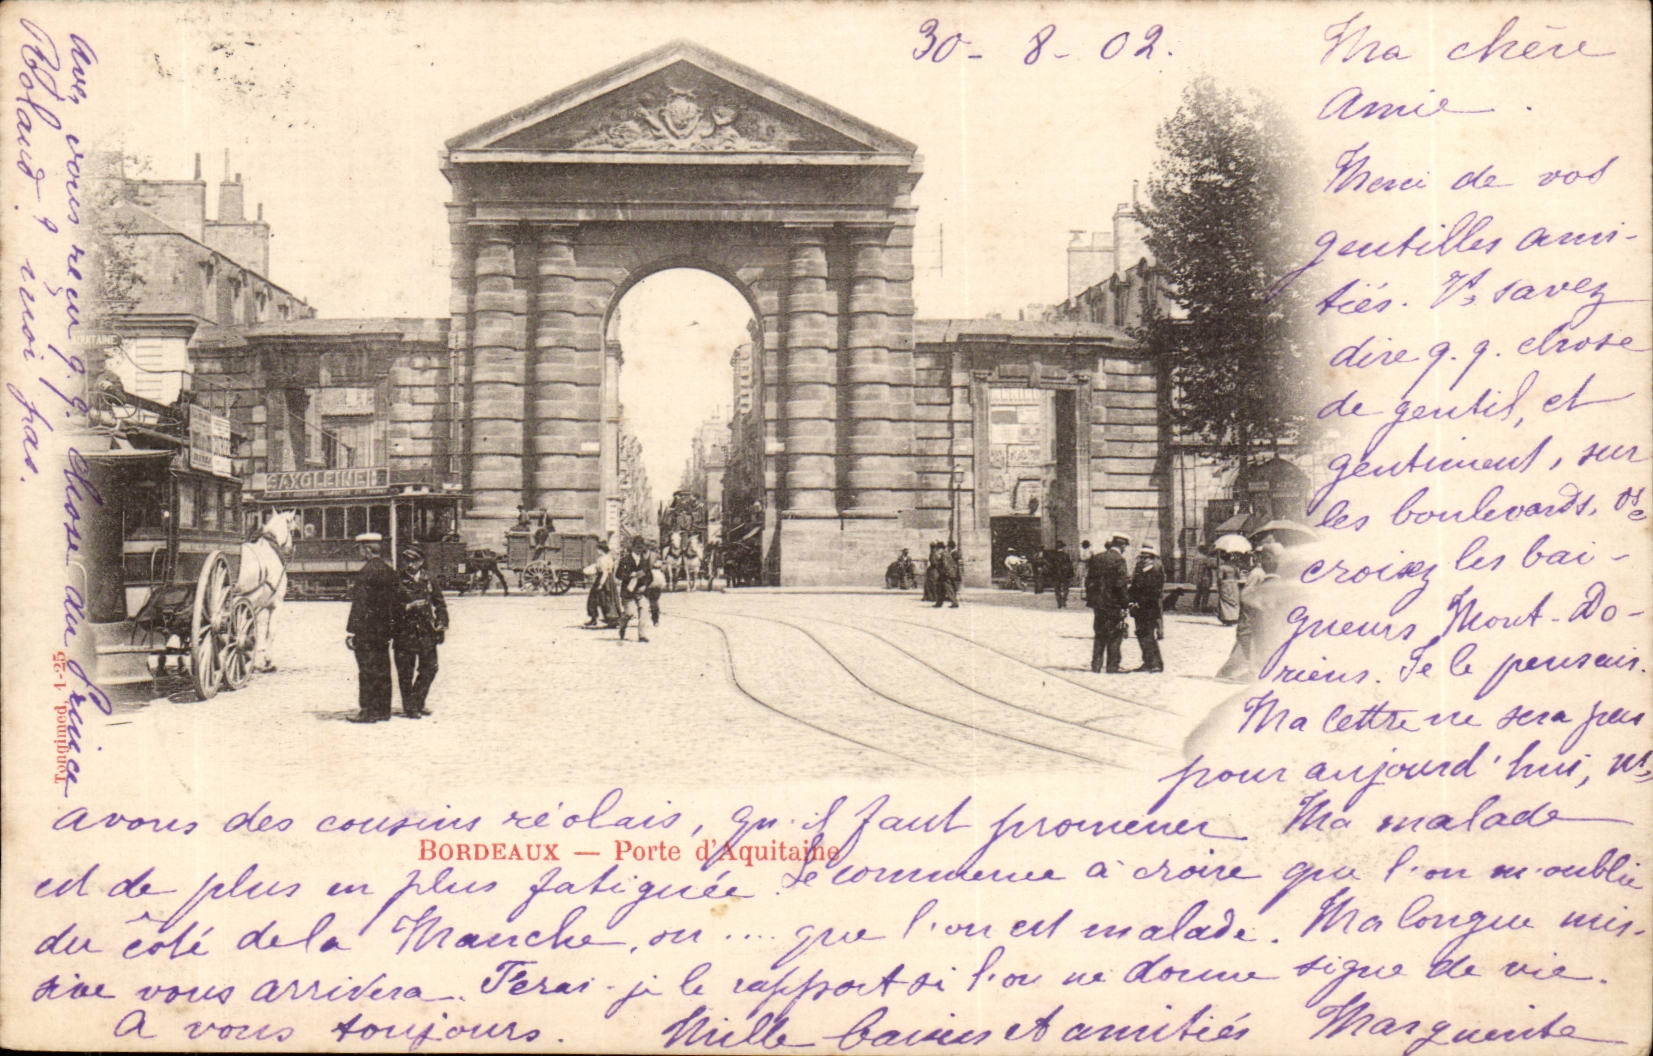 30-8-02.
Ma chère
Amie.
Merci de vos
gentilles ami-
tiés. Vs savez
dire q. q. chose
de gentil, et
gentiment, sur
les boulevards, où
croisez les bai-
gneurs Mont-Do-
riens. Je le pensais.
Ma lettre ne sera pas
pour aujourd'hui, ns
avons des cousins réolais, qu'il faut promener. Ma malade
est de plus en plus fatiguée. Je commence à croire que l'on m'oublie
du côté de la Manche, ou .... que l'on est malade. Ma longue mis-
sive vous arrivera. Ferai-je le rapport si l'on ne donne signe de vie.
A vous toujours. Mille baisers et amitiés Marguerite
Avez vous reçu q. q. chose du Prince
Roland? moi pas.
SAXOLEINE
AQUITAINE
BORDEAUX — Porte d'Aquitaine
Tonginod, 1-25